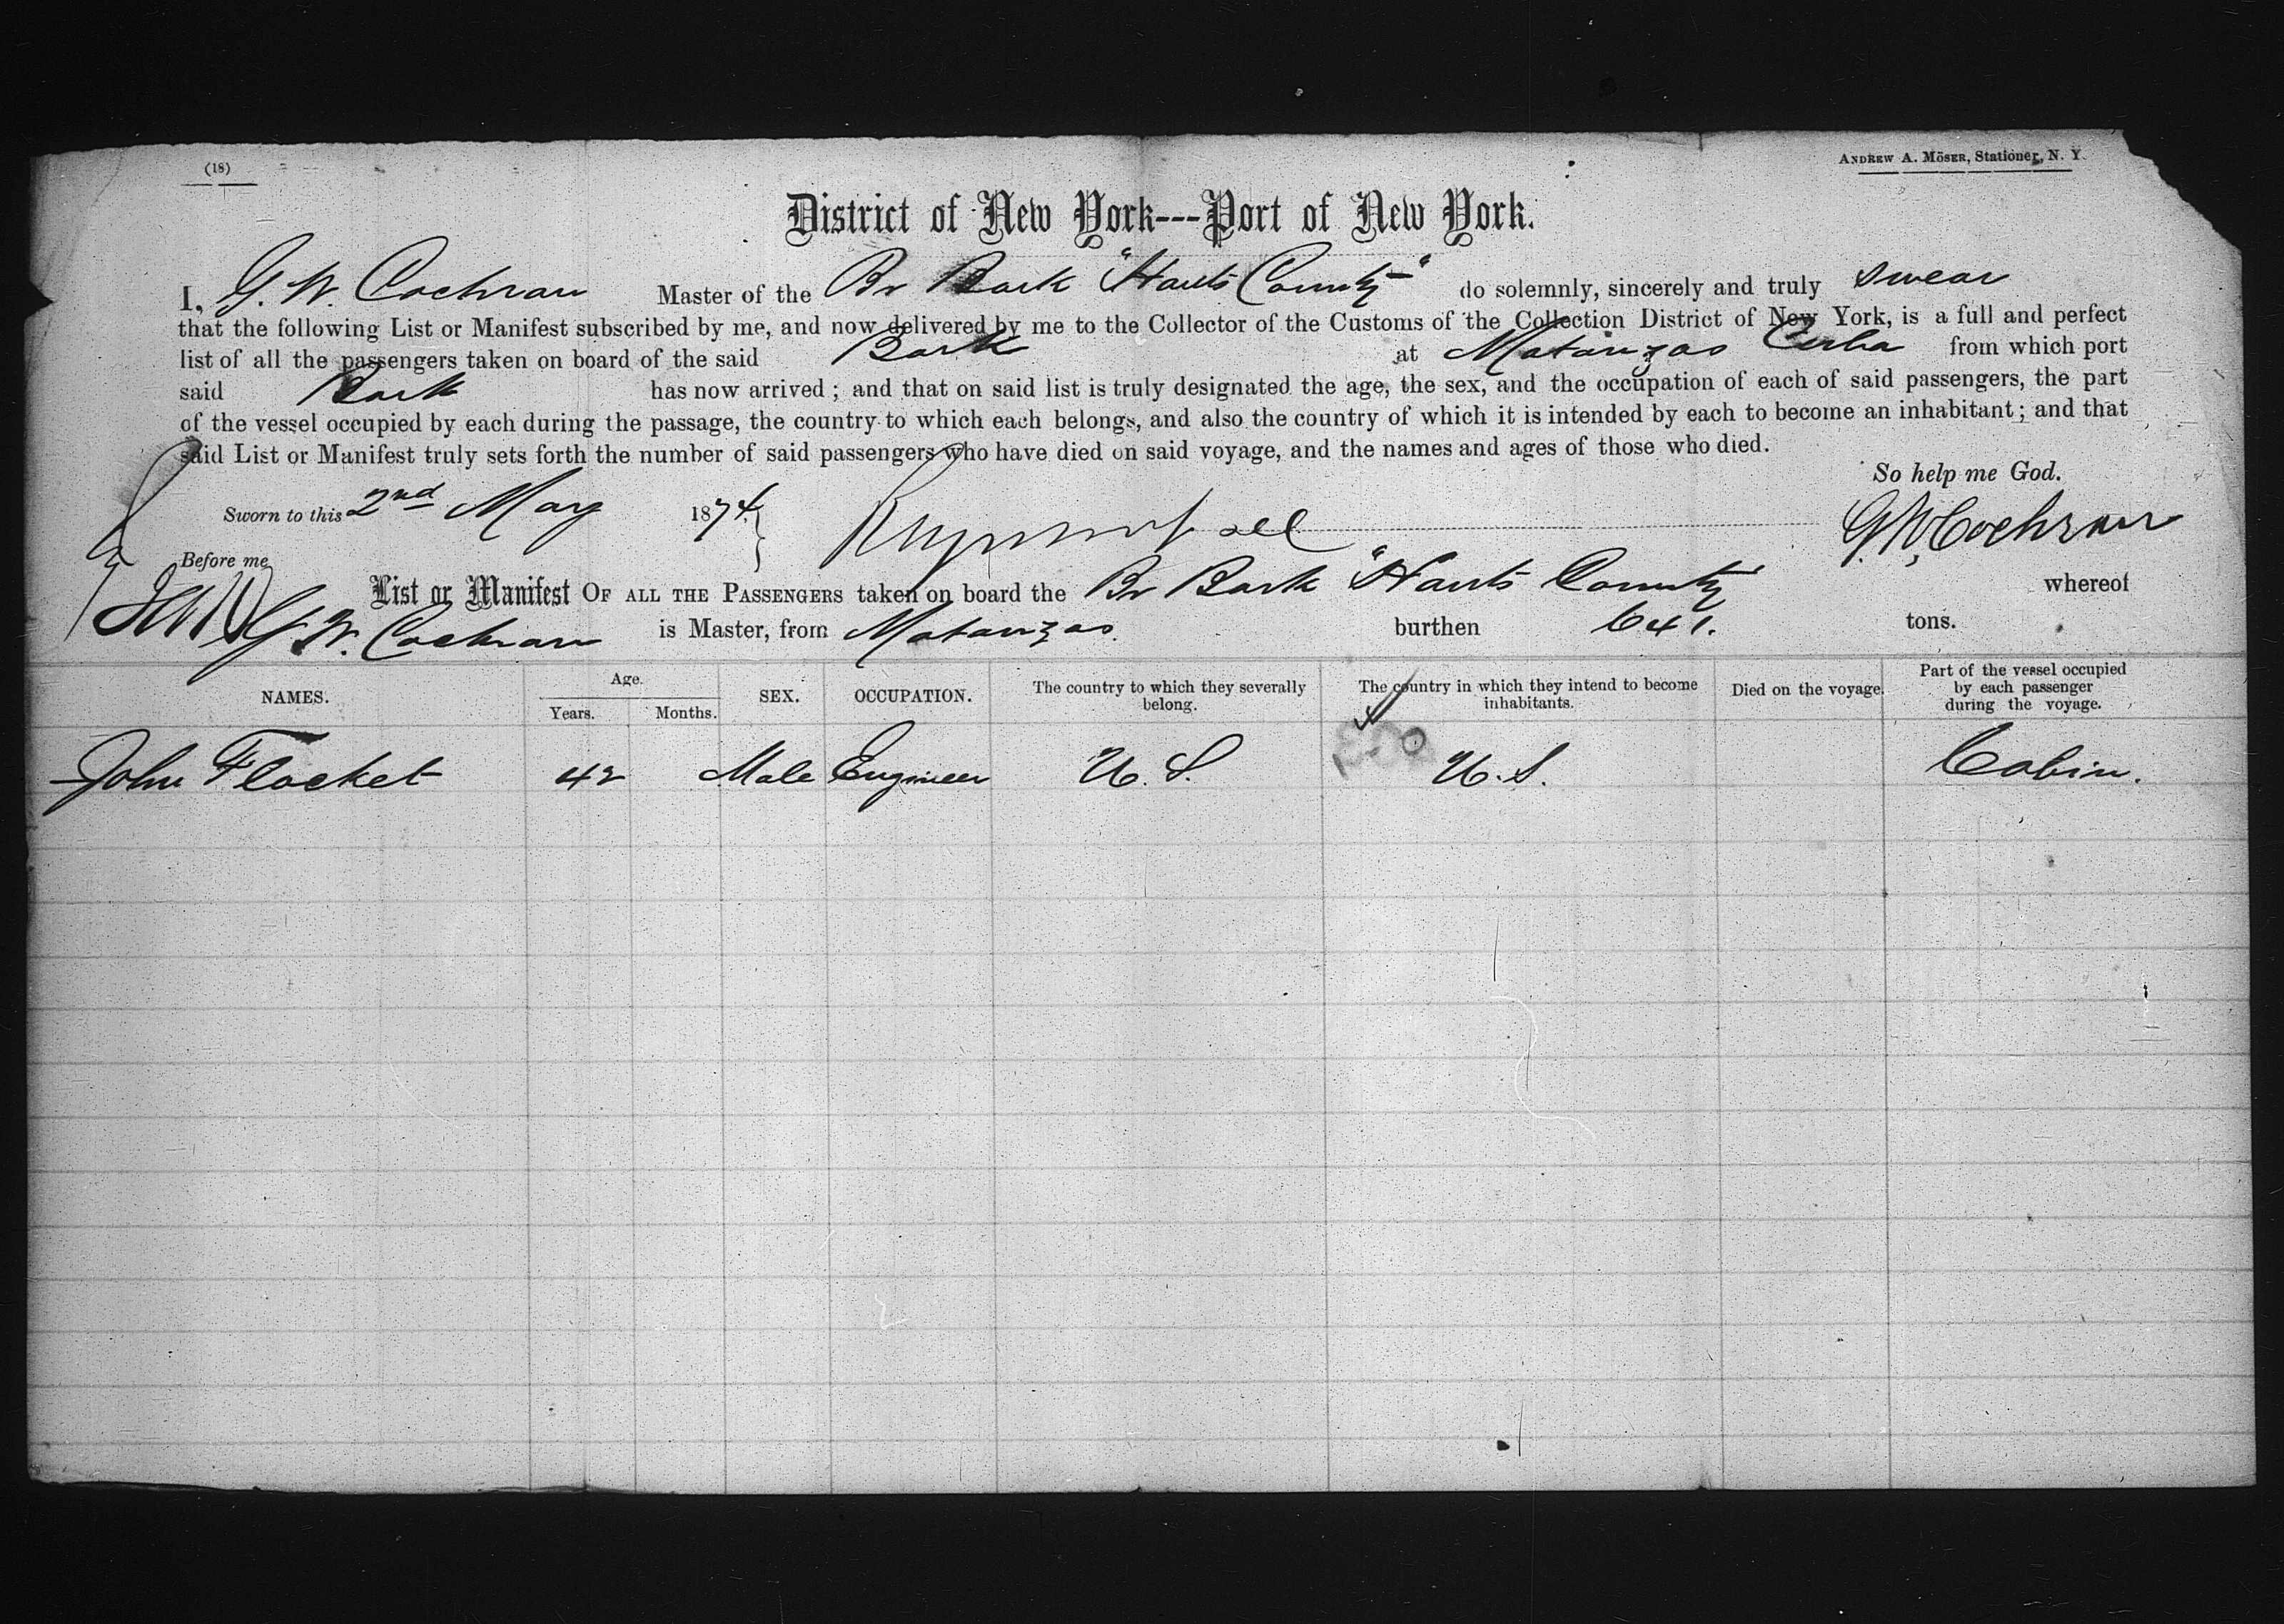 (18)
ANDREW A. MÖSER, Stationer, N. Y.
District of New York---Port of New York.
I, G. W. Cochran Master of the Br Bark "Hants County" do solemnly, sincerely and truly swear
that the following List or Manifest subscribed by me, and now delivered by me to the Collector of the Customs of the Collection District of New York, is a full and perfect
list of all the passengers taken on board of the said Bark at Matanzas Cuba from which port
said Bark has now arrived; and that on said list is truly designated the age, the sex, and the occupation of each of said passengers, the part
of the vessel occupied by each during the passage, the country to which each belongs, and also the country of which it is intended by each to become an inhabitant; and that
said List or Manifest truly sets forth the number of said passengers who have died on said voyage, and the names and ages of those who died.
So help me God.
Sworn to this 2nd May 1874. G. W. Cochran
Before me
List or Manifest OF ALL THE PASSENGERS taken on board the Br Bark "Hants County" whereof
G. W. Cochran is Master, from Matanzas. burthen 641. tons.
NAMES. Age. Years. Months. SEX. OCCUPATION. The country to which they severally belong. The country in which they intend to become inhabitants. Died on the voyage. Part of the vessel occupied by each passenger during the voyage.
John Flocket 42 Male Engineer U. S. U. S. Cabin.